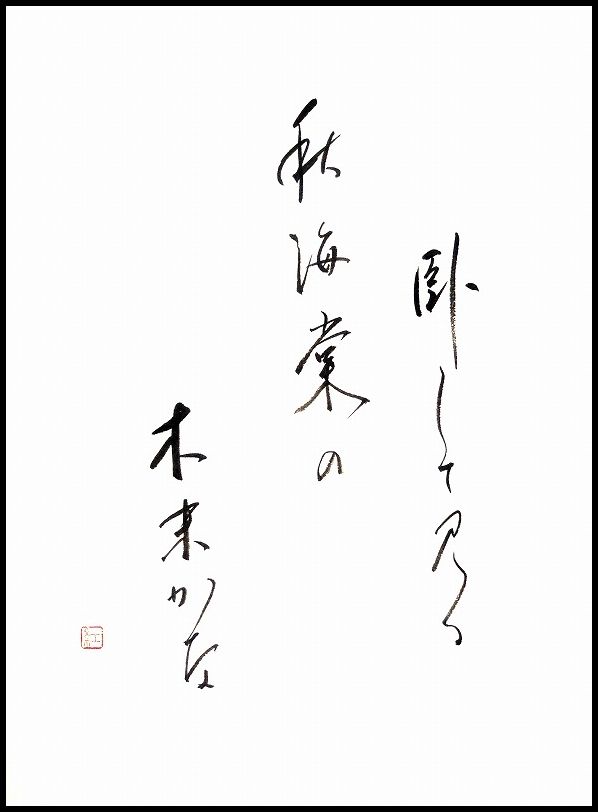 臥して見る
秋海棠の
木末かな